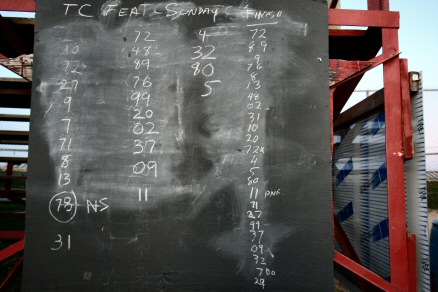 TC FEAT - SUNDAY - FINISH
10
22
27
9
7
71
8
13
78 NS
31
72
48
89
76
99
20
02
37
09
11
4
32
80
5
72
89
9
76
8
13
48
02
31
10
20
72x
4
5
80
11 DNF
71
27
99
37
09
32
29